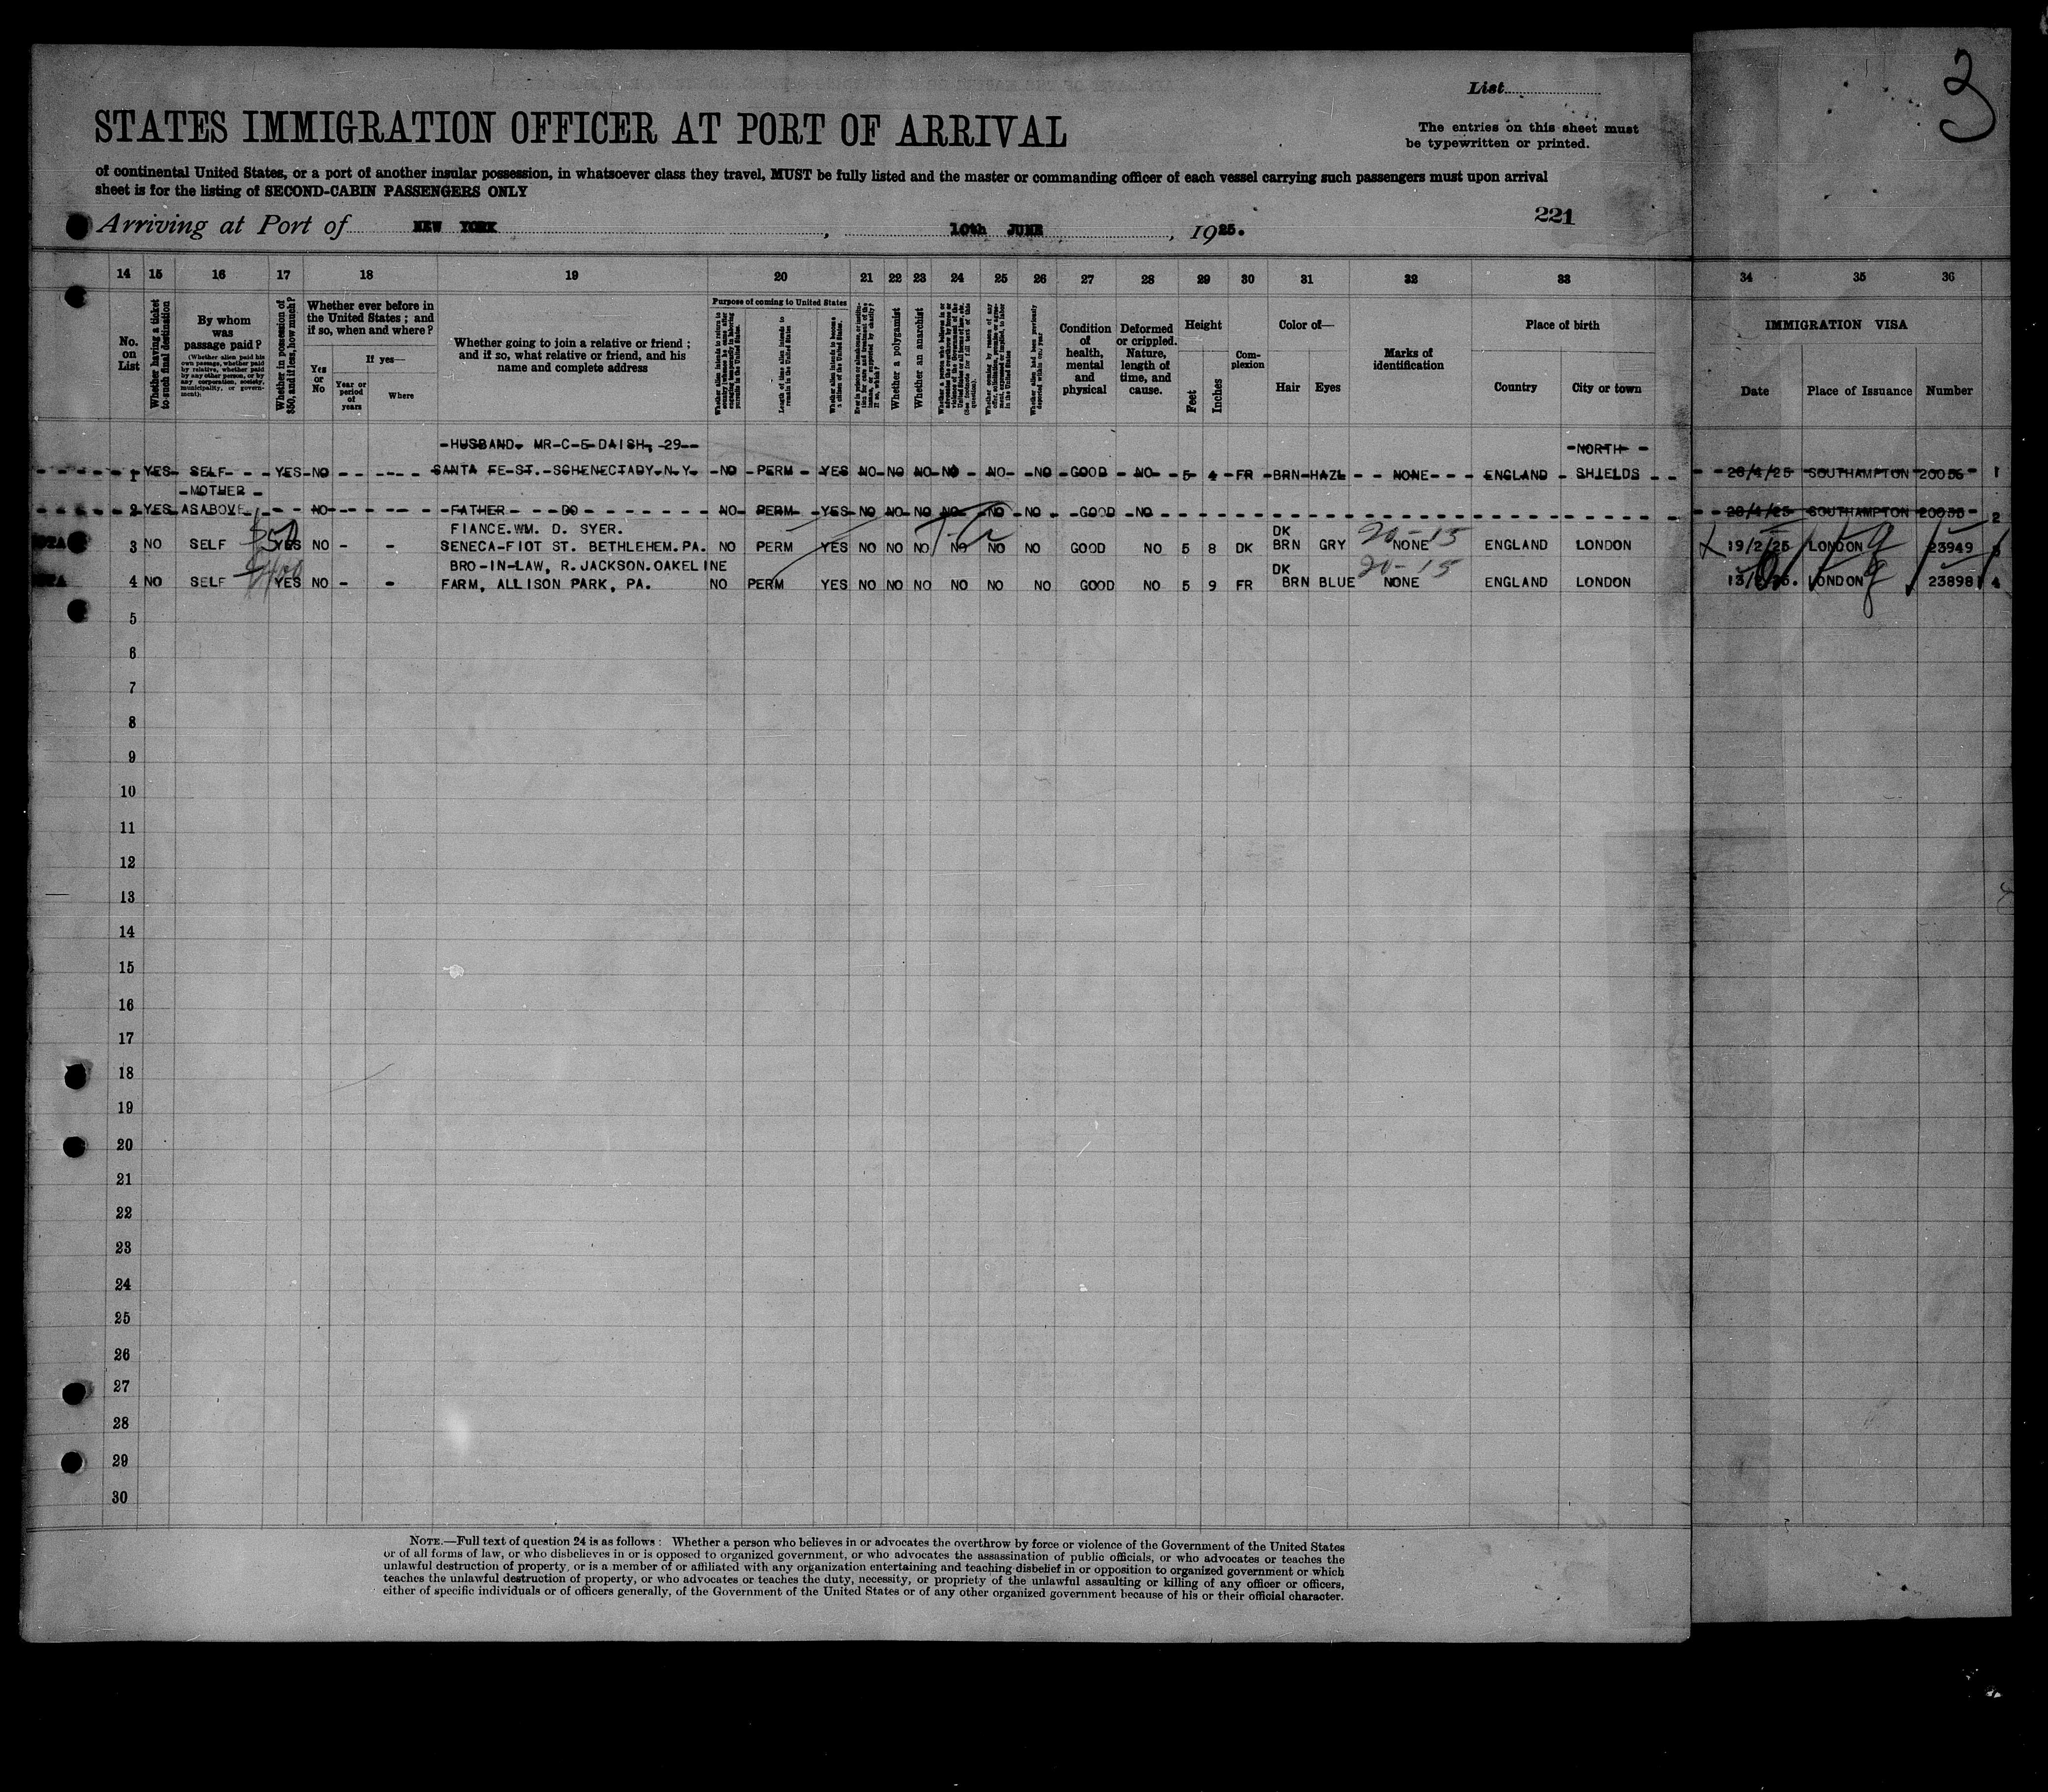 3
List
STATES IMMIGRATION OFFICER AT PORT OF ARRIVAL
The entries on this sheet must
be typewritten or printed.
of continental United States, or a port of another insular possession, in whatsoever class they travel, MUST be fully listed and the master or commanding officer of each vessel carrying such passengers must upon arrival
sheet is for the listing of SECOND-CABIN PASSENGERS ONLY
221
Arriving at Port of NEW YORK, 10th JUNE, 1925.
14 15 16 17 18 19 20 21 22 23 24 25 26 27 28 29 30 31 32 33 34 35 36
No. on List
Whether having a ticket to such final destination
By whom was passage paid?
(Whether alien paid his own passage, whether paid by relative, whether paid by any other person, or by any corporation, society, municipality, or government);
Whether in possession of $50, and if less, how much?
Whether ever before in the United States; and if so, when and where?
Yes or No
If yes—
Year or period of years
Where
Whether going to join a relative or friend; and if so, what relative or friend, and his name and complete address
Purpose of coming to United States
Length of time alien intends to remain in the United States
Whether alien intends to become a citizen of the United States.
Whether a polygamist
Whether an anarchist
Condition of health, mental and physical
Deformed or crippled. Nature, length of time, and cause.
Height
Feet
Inches
Complexion
Color of—
Hair
Eyes
Marks of identification
Place of birth
Country
City or town
IMMIGRATION VISA
Date
Place of Issuance
Number
-HUSBAND. MR-C-E-DAISH, 29-- -NORTH-
1 YES- SELF- -YES-NO SANTA FE-ST.-SCHENECTADY-N.Y. -NO -PERM -YES NO-NO NO-NO -NO- -NO -GOOD -NO- 5 4 -FR -BRN-HAZL - NONE- - ENGLAND - SHIELDS 28/4/25 SOUTHAMPTON 20056 1
-MOTHER -
2 YES AS ABOVE -NO- -FATHER - - DO NO- PERM- YES-NO NO NO NO NO NO -GOOD -NO 28/4/25 SOUTHAMPTON 2
FIANCE.WM. D. SYER. DK
$50
3 NO SELF YES NO - - SENECA-FIOT ST. BETHLEHEM.PA. NO PERM YES NO NO NO NO NO NO GOOD NO 5 8 DK BRN GRY NONE 20-15 ENGLAND LONDON 19/2/25 LONDON 23949 3
BRO-IN-LAW, R.JACKSON.OAKELINE DK
4 NO SELF YES NO - - FARM, ALLISON PARK, PA. NO PERM YES NO NO NO NO NO NO GOOD NO 5 9 FR BRN BLUE NONE 20-15 ENGLAND LONDON LONDON 23898 4
5
6
7
8
9
10
11
12
13
14
15
16
17
18
19
20
21
22
23
24
25
26
27
28
29
30
NOTE.—Full text of question 24 is as follows: Whether a person who believes in or advocates the overthrow by force or violence of the Government of the United States
or of all forms of law, or who disbelieves in or is opposed to organized government, or who advocates the assassination of public officials, or who advocates or teaches the
unlawful destruction of property, or is a member of or affiliated with any organization entertaining and teaching disbelief in or opposition to organized government or which
teaches the unlawful destruction of property, or who advocates or teaches the duty, necessity, or propriety of the unlawful assaulting or killing of any officer or officers,
either of specific individuals or of officers generally, of the Government of the United States or of any other organized government because of his or their official character.